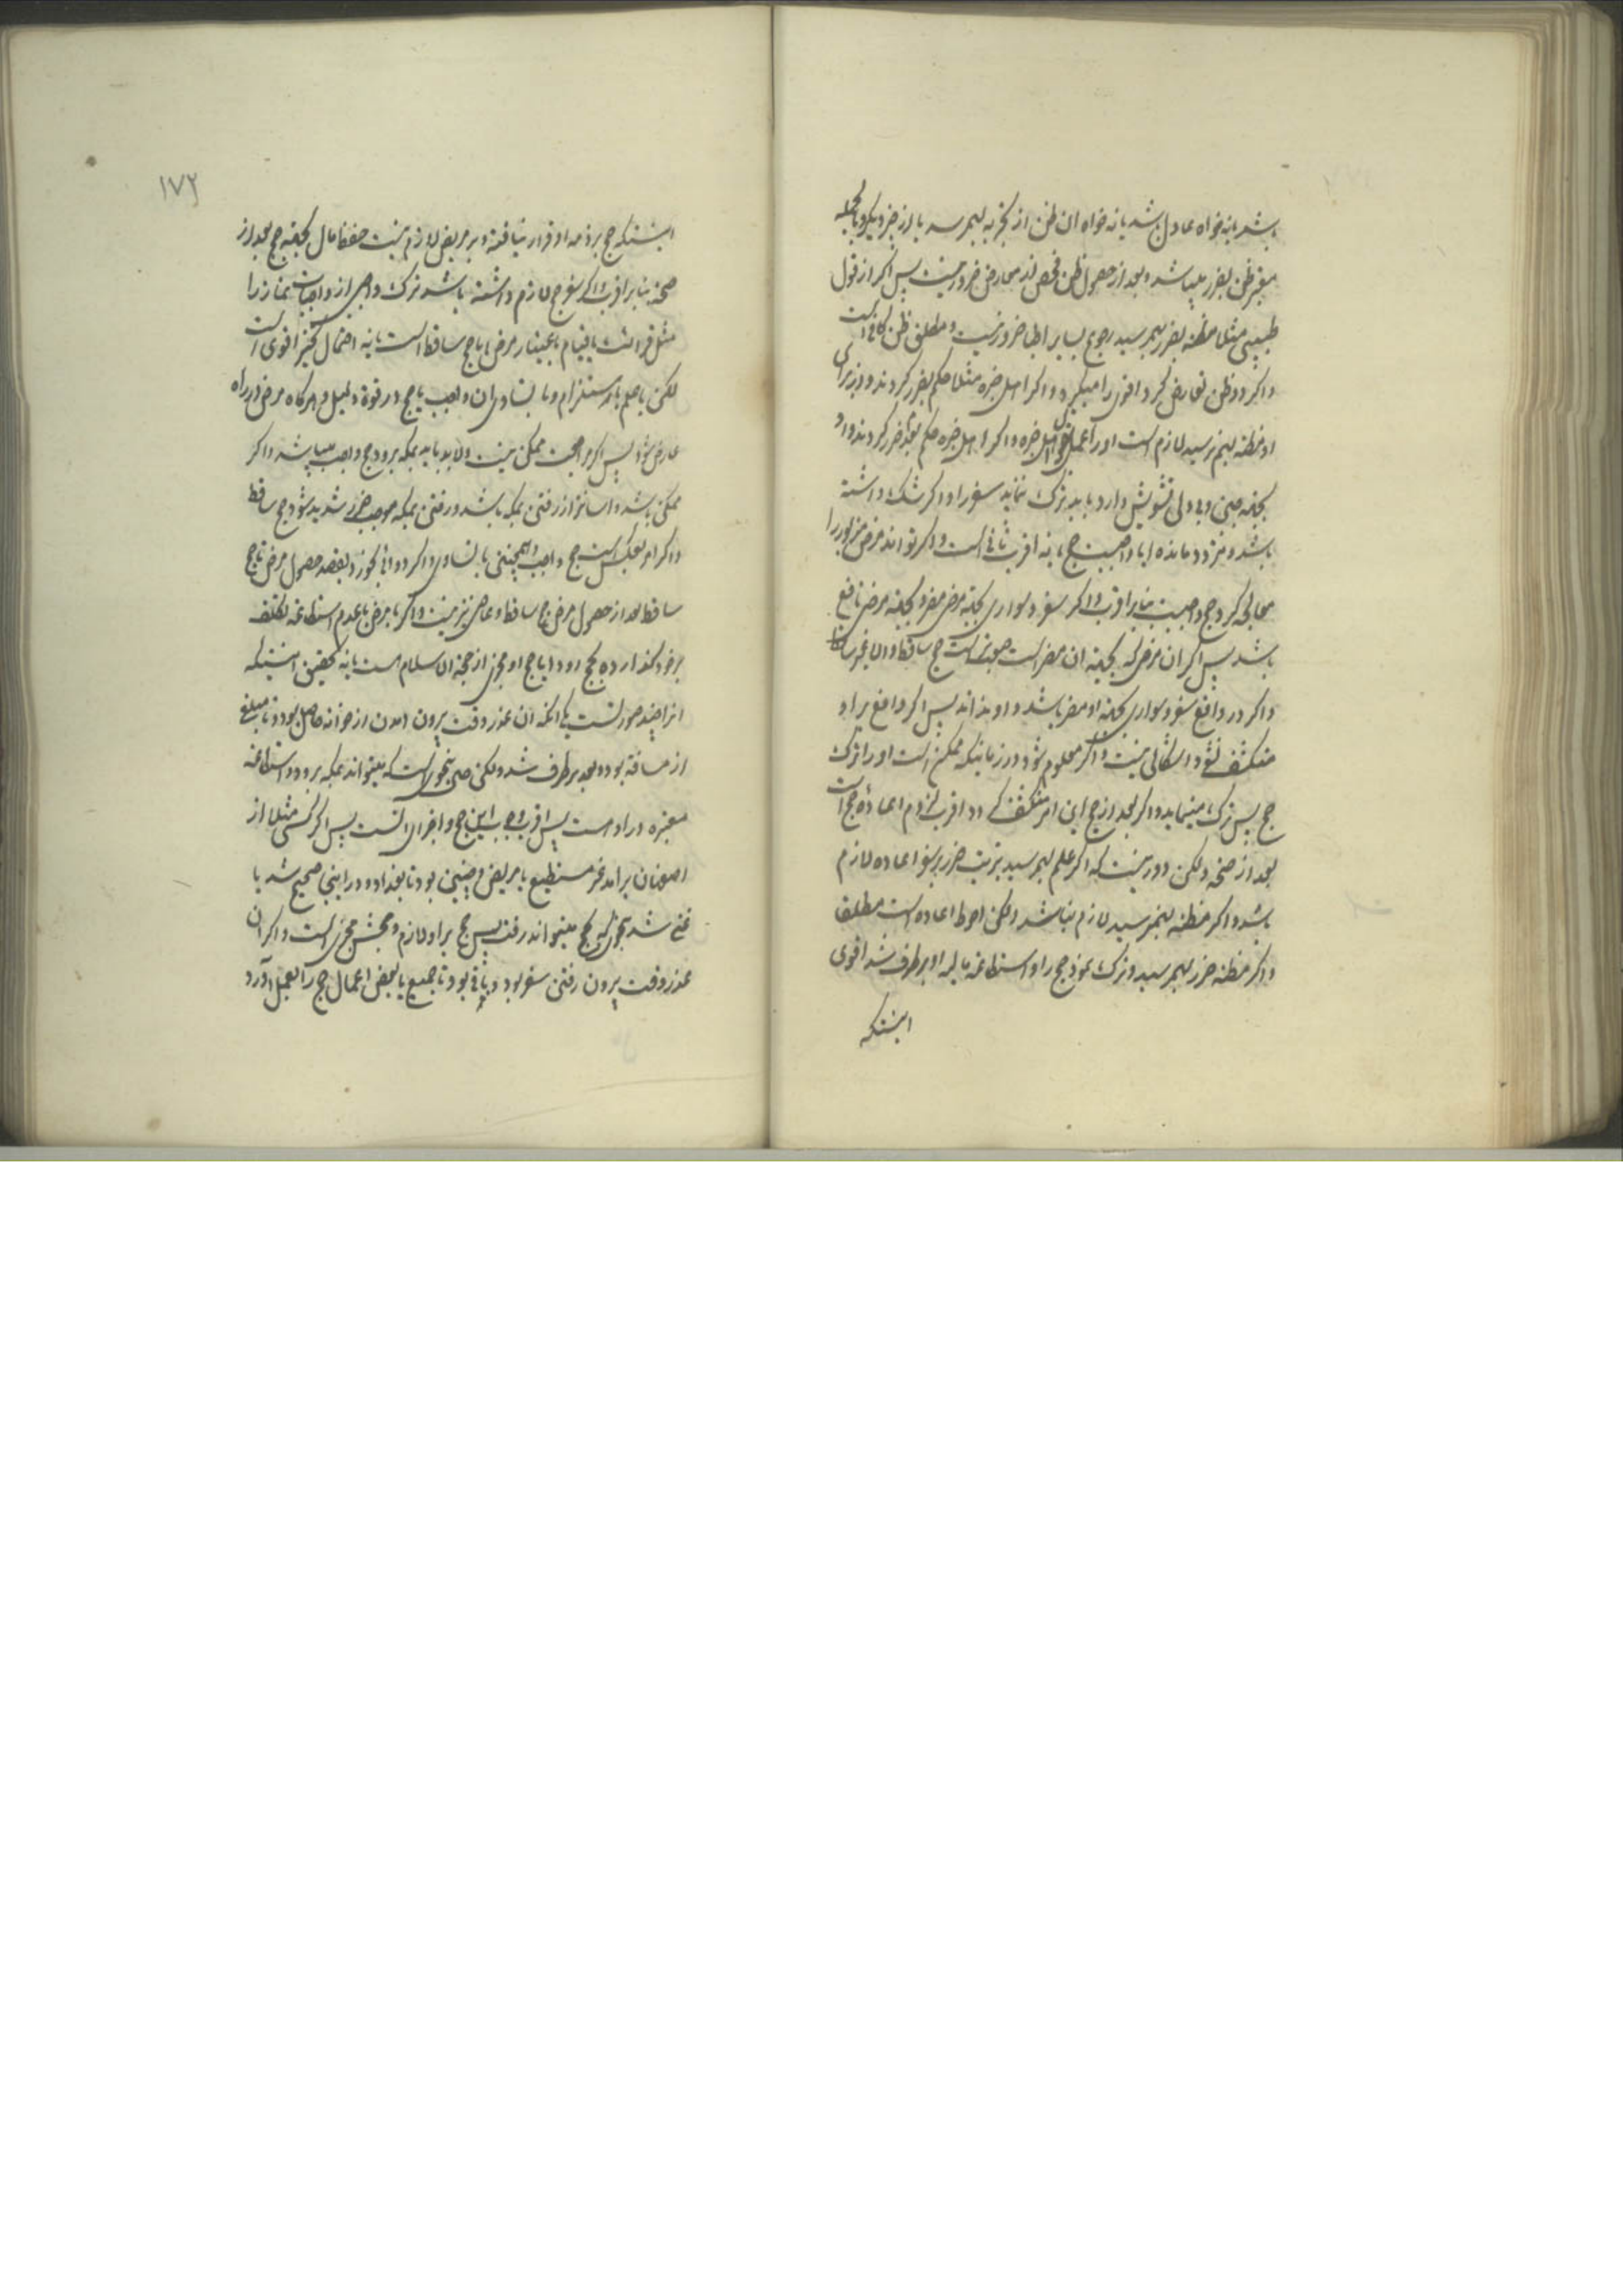 باشد یا نه خواه عادل باشد یا نه خواه ان ظن از تجربه بهمرسد یا از چیز دیگر و بالجمله
معتبر ظن بضرر میباشد و بعد از حصول ظن فحص از معارض ضرور نیست پس اکر از قول
طبیبی مثلا مظنه بضرر بهمرسید رجوع بسایر اطبا ضرور نیست و مطلق ظن کافی است
و اکر دو ظن تعارض کرد اقوی را میگیرد و اکر اهل خبره مثلا حکم بضرر کردند و از برای
او مظنه بهم نرسید لازم است او را عمل بقول اهل خبره و اکر اهل خبره حکم بعدم ضرر کردند و او
بجهة جبن و بی دلی تشویش دارد باید ترک ننماید سفر را و اکر شک داشته
باشد و متردد مانده ایا واجبست حج یا نه اقرب ثانی است و اکر تواند مرض مزبور را
معالجه کرد حج واجبست بنابر اقرب و اکر سفر و سواری بجهة مرضی مضر و بجهة مرضی نافع
باشد پس اکر ان مرضی که بجهة ان مضر است صعبتر است حج ساقط و الا غیر ساقط
و اکر در واقع سفر و سواری بجهة او مضر باشد و او نداند پس اکر واقع بر او
منکشف نشود اشکالی نیست و اکر معلوم شود در زمانیکه ممکن است او را ترک
حج پس ترک مینماید و اکر بعد از حج این امر منکشف کردد اقرب لزوم اعاده حج است
بعد از صحة ولکن دور نیست که اکر علم بهمرسید بترتب ضرر بر سفر اعاده لازم
باشد و اکر مظنه بهمرسید لازم نباشد ولکن احوط اعاده است مطلقا
و اکر مظنه ضرر بهمرسید و ترک نمود حج را و استطاعة مالیه او برطرف شد اقوی
اینستکه
۱۷۲
اینستکه حج بر ذمه او قرار نیافته و بر مریض لازم نیست حفظ مال بجهة حج بعد از
صحة بنابر اقرب و اکر سفر حج لازم داشته باشد ترک واجبی از واجبات نماز را
مثل قرائت یا قیام باعتبار مرض ایا حج ساقط است یا نه احتمال اخیر اقوی است
لکن با علم باستلزام و با تساوی ان واجب با حج در قوة دلیل و هرکاه مرض در راه
عارض شود پس اکر مراجعت ممکن نیست و لابد باید بمکه برود حج واجب میباشد و اکر
ممکن باشد و اسانتر از رفتن بمکه باشد و رفتن بمکه موجب ضرر شدید شود حج ساقط
و اکر امر بعکس است حج واجب و همچنین با تساوی و اکر دوائی بخورد بقصد حصول مرض تا حج
ساقط بعد از حصول مرض حج ساقط و عاصی نیز نیست و اکر با مرض یا عدم استطاعة تکلف
بر خود کذارده بحج رود ایا حج او مجزی از حجة الاسلام هست یا نه تحقیق اینستکه
انرا چند صورتست یکی انکه ان عذر وقت بیرون امدن از خوانه حاصل بود و تا مبلغی
از مسافة بود و بعد برطرف شد ولکن حین بنحوی است که میتواند بمکه برود و استطاعة
معتبره در او هست پس اقرب وجوب این حج و اجزای انست پس اکر کسی مثلا از
اصفهان برامد غیر مستطیع یا مریض و چنین بود تا بغداد و در اینجا صحیح شد یا
غنی شد بنحوی که بحج میتواند رفت پس حج بر او لازم و حجش مجزی است و اکر ان
عذر وقت بیرون رفتن سفر بود و باقی بود تا جمیع یا بعض اعمال حج را بعمل آورد